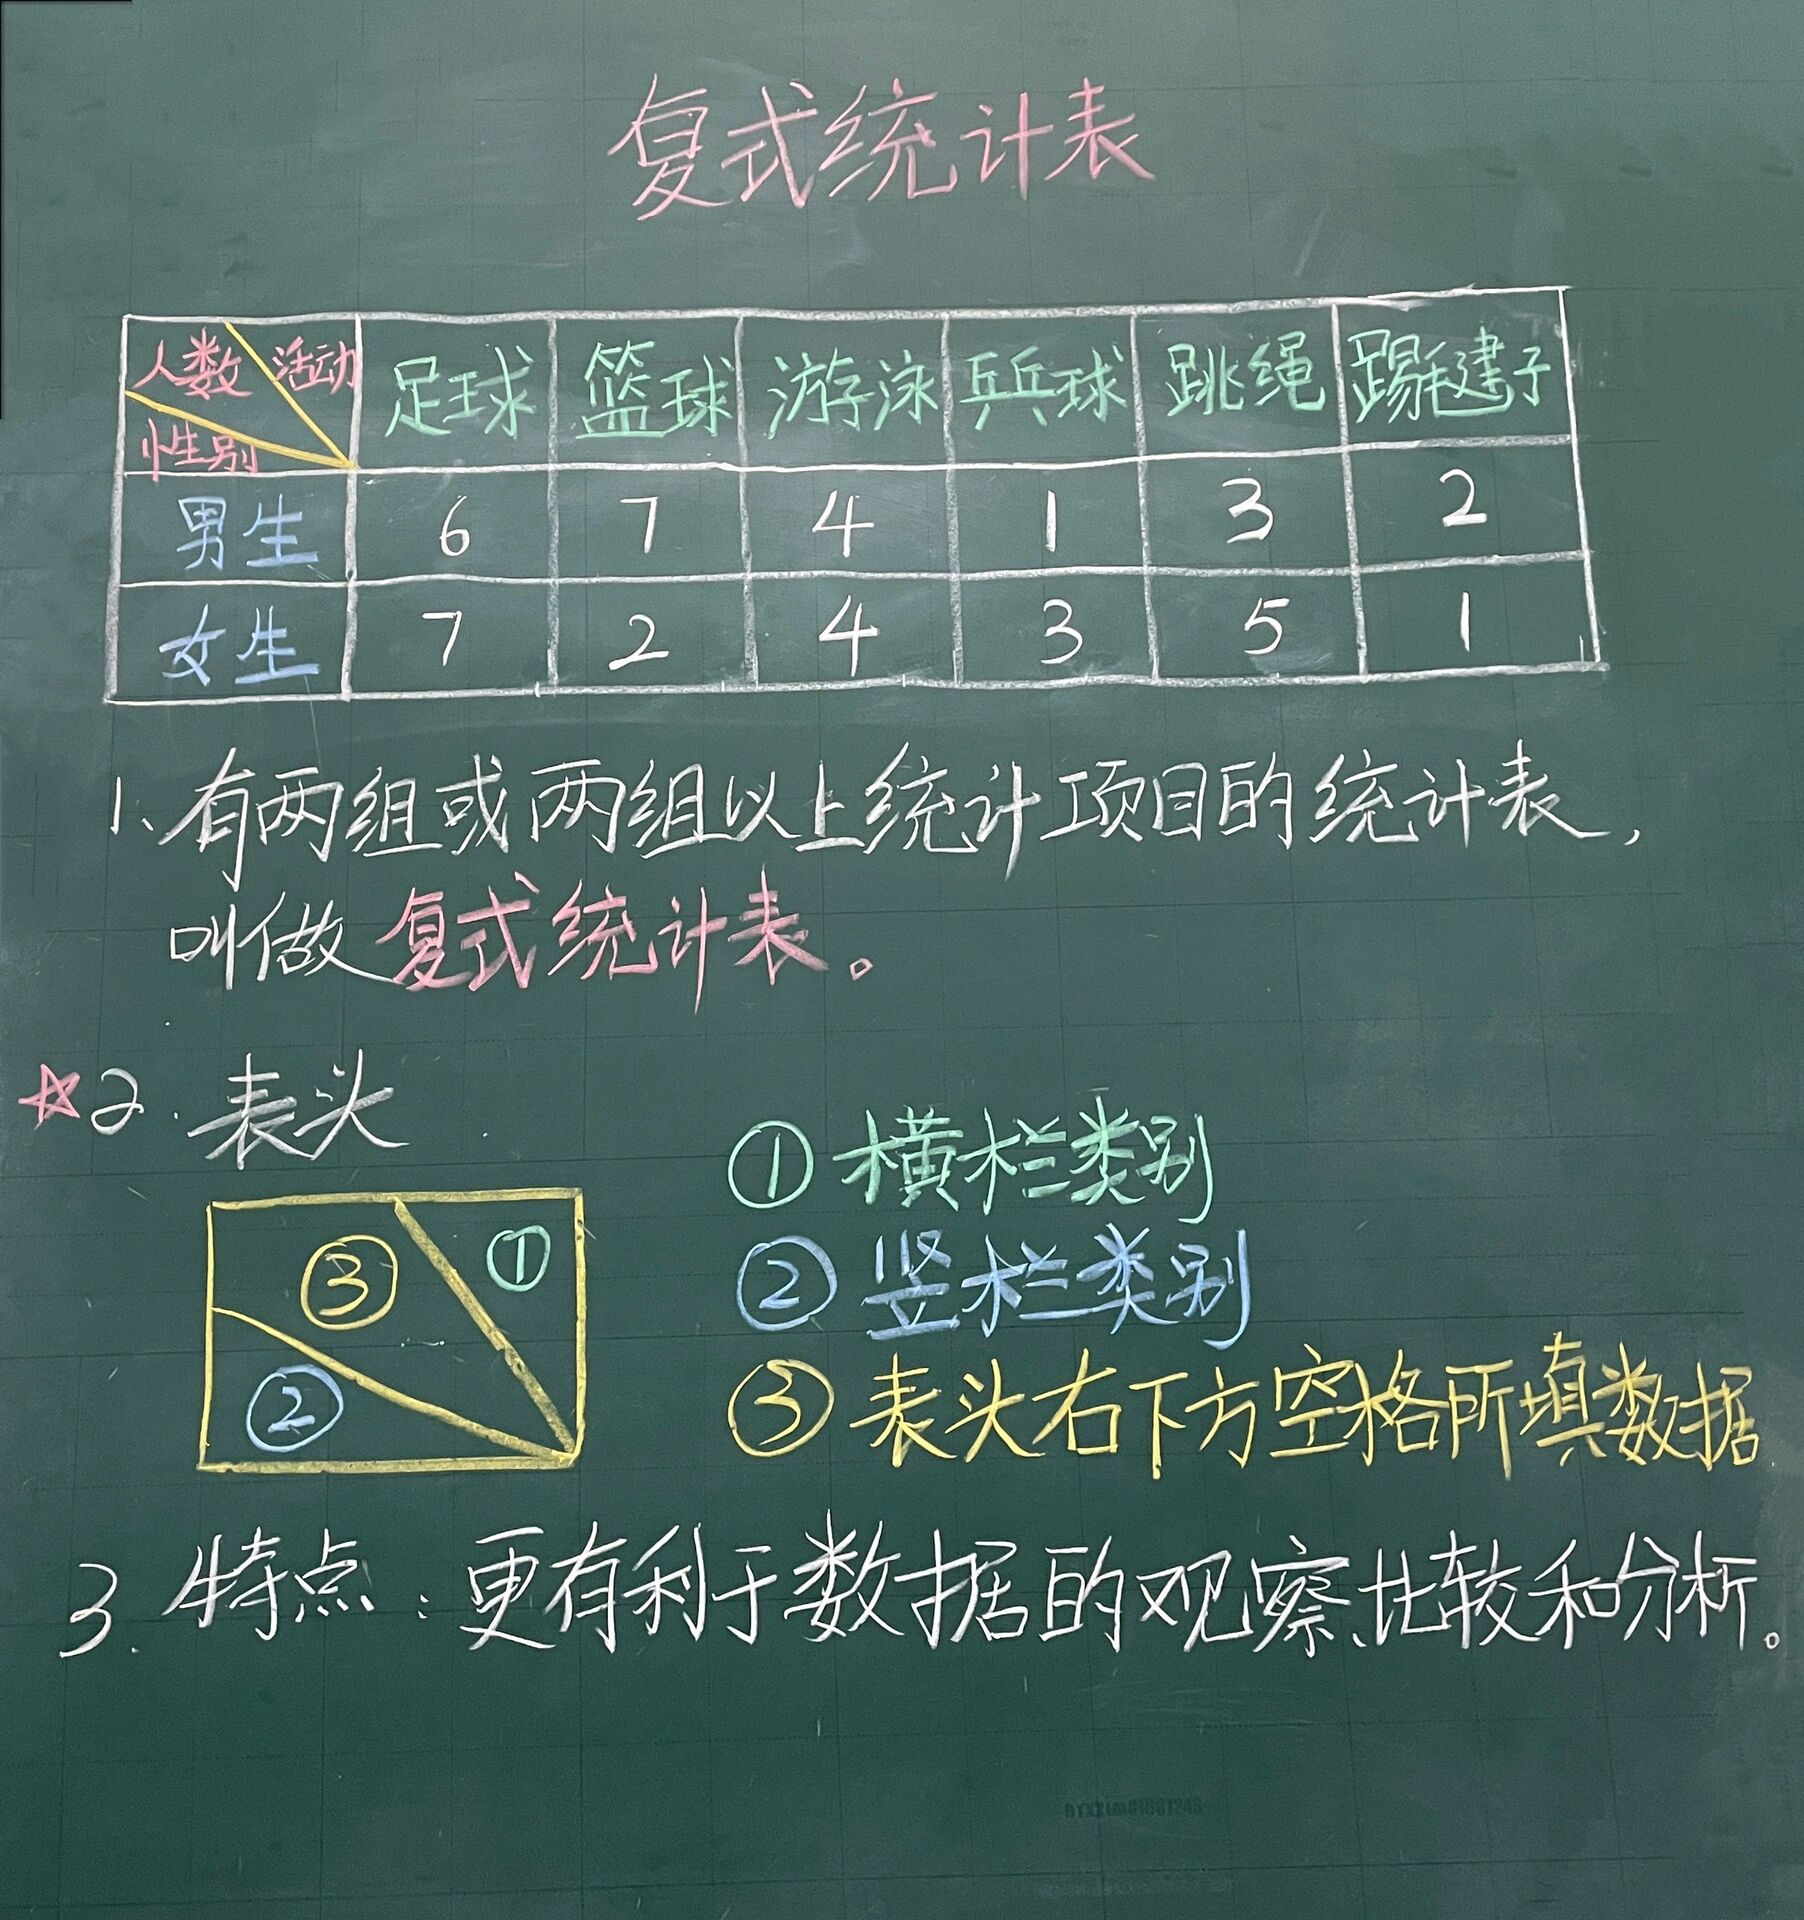 复式统计表
人数 活动 足球 篮球 游泳 乒乓球 跳绳 踢毽子
性别
男生 6 7 4 1 3 2
女生 7 2 4 3 5 1
1、有两组或两组以上统计项目的统计表,
叫做复式统计表。
☆2.表头
③ ①
②
①横栏类别
②竖栏类别
③表头右下方空格所填数据
3.特点:更有利于数据的观察、比较和分析。